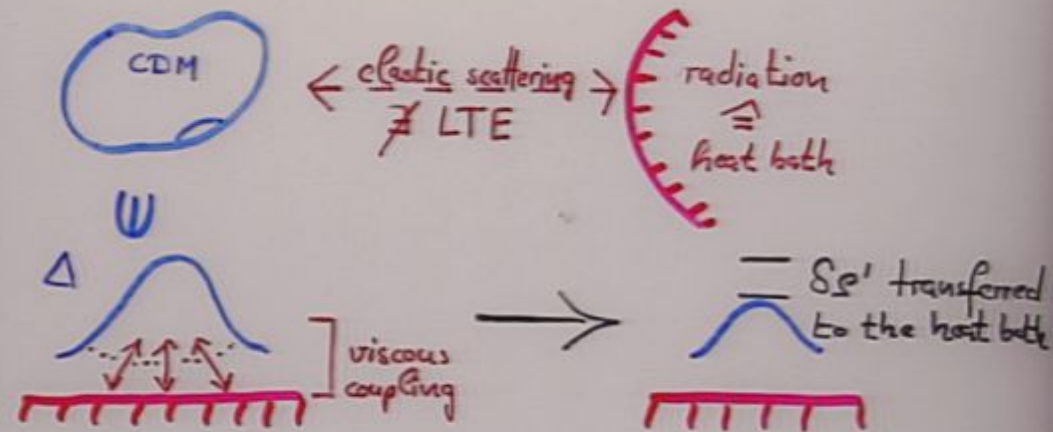 CDM
elastic scattering
∄ LTE
radiation
≙
heat bath
Δ
viscous
coupling
δρ' transferred
to the heat bath